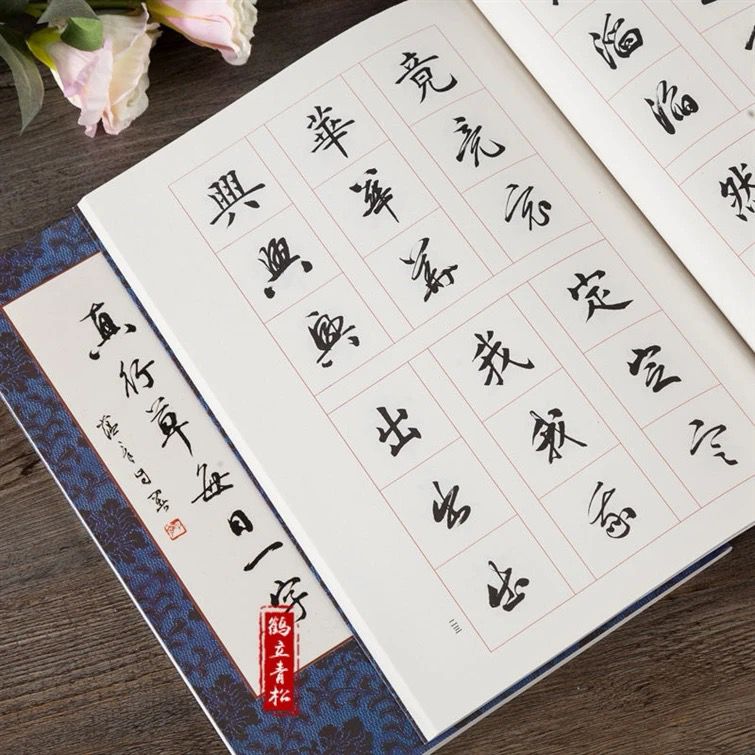 滔
滔
然
竟竟竟
華華華
興興興
定定定
我我我
出出出
真行草每日一字
鹤立青松